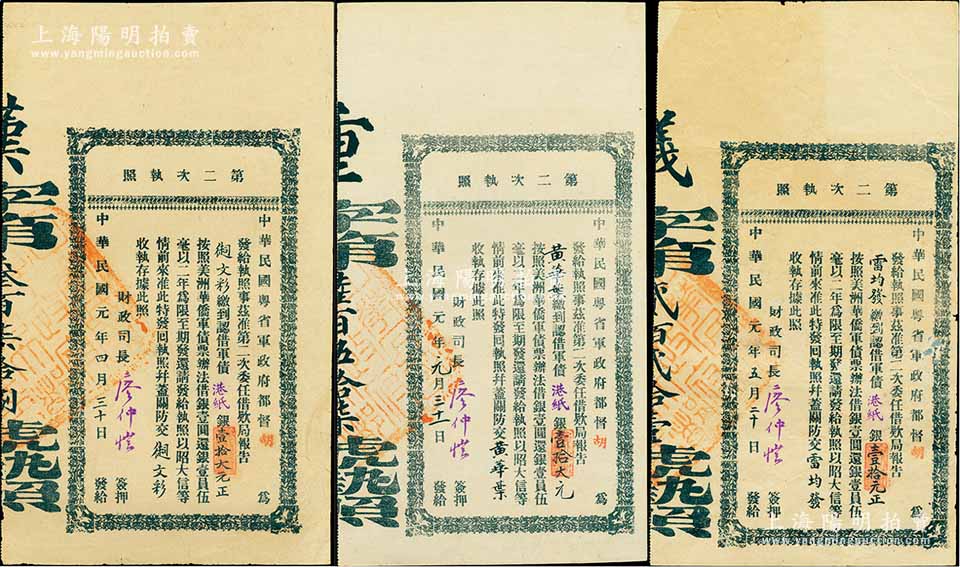 上海陽明拍賣
www.yangmingauction.com
照執次二第
中華民國粵省軍政府都督胡 為
發給執照事茲准第二次委任借款局報告
文彩繳到認借軍債港紙銀壹拾大元正
按照美洲華僑軍債票辦法借銀壹圓還銀壹員伍
毫以二年為限至期發還請發給執照以昭大信等
情前來准此特發回執照幷蓋關防交 文彩
收執存據此照
財政司長廖仲愷 簽押
中華民國元年四月三十日 發給
照執次二第
中華民國粵省軍政府都督胡 為
發給執照事茲准第二次委任借款局報告
黃華葉繳到認借軍債港紙銀壹拾大元
按照美洲華僑軍債票辦法借銀壹圓還銀壹員伍
毫以二年為限至期發還請發給執照以昭大信等
情前來准此特發回執照幷蓋關防交黃華葉
收執存據此照
財政司長廖仲愷 簽押
中華民國元年元月三十一日 發給
上海陽明拍賣
照執次二第
中華民國粵省軍政府都督胡 為
發給執照事茲准第二次委任借款局報告
雷均發繳到認借軍債港紙銀壹拾元正
按照美洲華僑軍債票辦法借銀壹圓還銀壹員伍
毫以二年為限至期發還請發給執照以昭大信等
情前來准此特發回執照幷蓋關防交雷均發
收執存據此照
財政司長廖仲愷 簽押
中華民國元年五月二十日 發給
上海陽明拍賣
www.yangmingauction.com